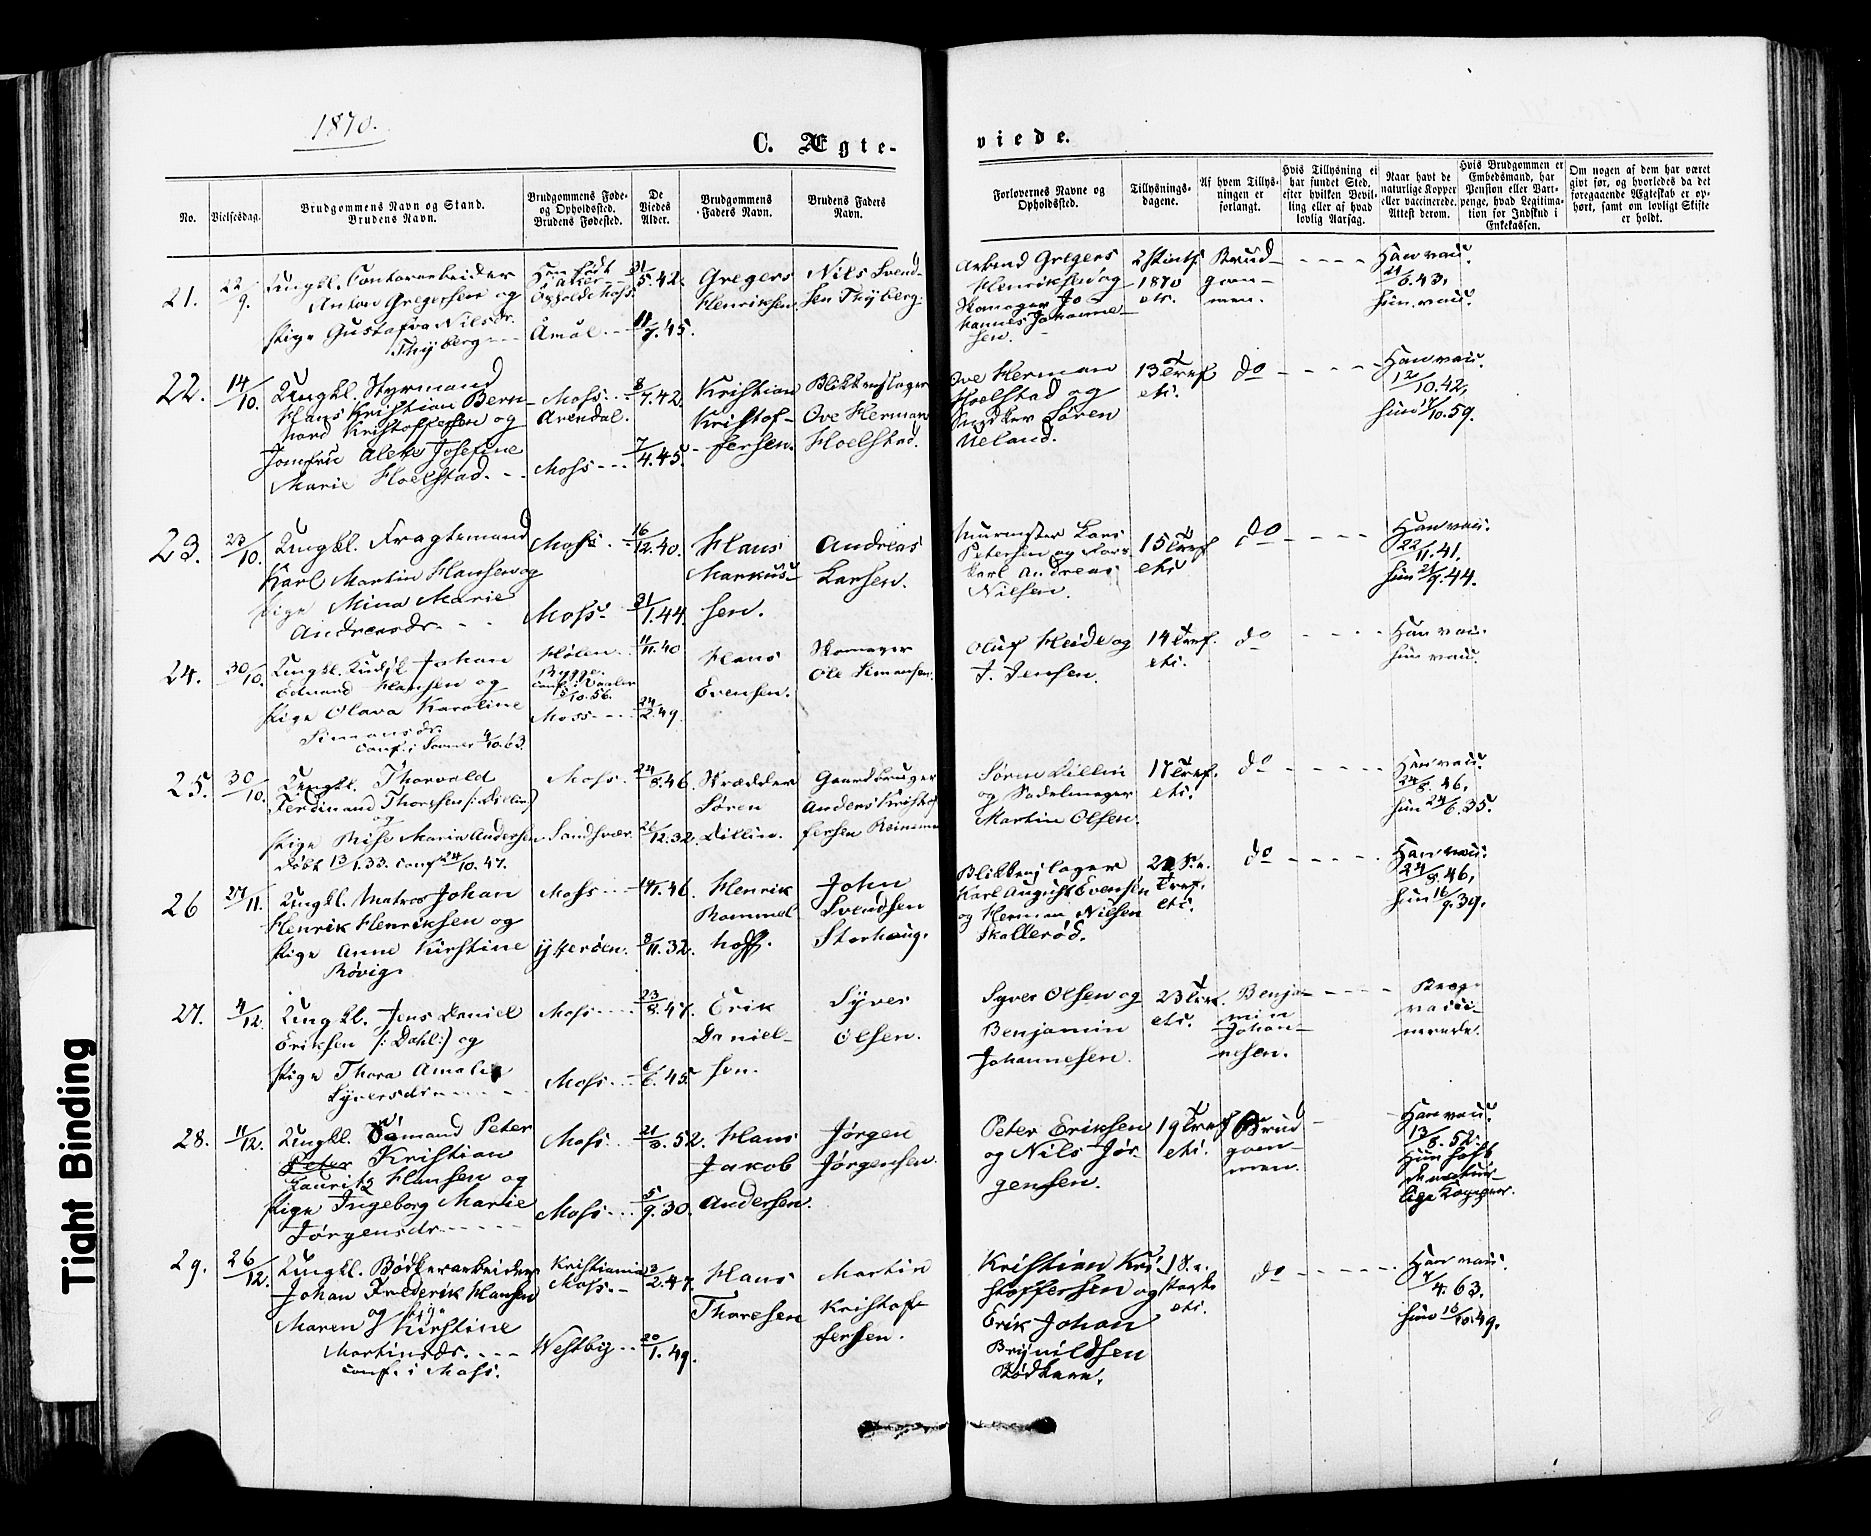 1870.
C. Ægte-
viede.
No.
Vielsesdag.
Brudgommens Navn og Stand.
Brudens Navn.
Brudgommens Føde-
og Opholdssted.
Brudens Fødested.
De
Viedes
Alder.
Brudgommens
Faders Navn.
Brudens Faders
Navn.
Forlovernes Navne og
Opholdssted.
Tillysnings-
dagene.
Af hvem Tillys-
ningen er
forlangt.
Hvis Tillysning ei
har fundet Sted,
efter hvilken Bevil-
ling eller af hvad
lovlig Aarsag.
Naar havt de
naturlige Kopper
eller vaccinerede.
Attest derom.
Hvis Brudgommen er
Embedsmand, har
Pension eller Vart-
penge, hvad Legitima-
tion for Indskud i
Enkekassen.
Om nogen af dem har været
givt før, og hvorledes da det
foregaaende Ægteskab er op-
hørt, samt om lovligt Skifte
er holdt.
21.
22/9.
Ungkl. Contorarbeider
Anton Gregersen og
Pige Gustafva Nilsdr.
Thyberg
Opholdt Moss.
Åmål.
31/5.42.
11/7.45.
Gregers
Henriksen.
Nils Svend-
sen Thyberg.
Arbmd Gregers
Henriksen og
Skomager Jo-
hannes Johanne-
sen.
1870
etc.
Brud-
gom-
men.
Han vacc.
6.43.
hun vacc.
22.
14/10.
Ungkl. Styrmand
Hans Kristian Bern-
hard Kristoffersen og
Jomfru Alette Josefine
Marie Hoelstad.
Moss.
Arendal.
Moss
8/7.42.
7/4.45.
Kristian
Kristof-
fersen.
Blikkenslager
Ove Herman
Hoelstad.
Ove Herman
Hoelstad og
Snedker Søren
Ueland.
13 Tref
etc.
do
Han vacc.
12/10.42,
hun 17/10.59.
23.
23/10.
Ungkl. Fragtemand
Karl Martin Hansen og
Pige Mina Marie
Andreasdr.
Moss
Moss.
16/12.40.
31/1.44.
Hans
Markus-
sen.
Andreas
Larsen.
Murmester Lars
Petersen og
Karl Andreas
Nilsen.
15 Tref
etc
do
Han vacc.
22/11.41.
hun 21/9.44.
24.
30/10.
Ungkl. Johan
Edvard Hansen og
Pige Olava Karoline
Simonsdr.
conf. i Sooner 4/10.63.
Hølen.
Bygge.
conf. i Vaaler
5/10.56.
Moss
11/11.40
24/2.49.
Hans
Evensen.
Skomager
Ole Simonsen.
Oluf Heide og
J. Jensen.
14 Tref.
etc.
do
Han vacc.
hun vacc.
25.
30/10.
Ungkl. Thorvald
Ferdinand (: Dillin)
og
Pige Maria Andersen
døbt 13/1.33. conf 24/10.47.
Moss.
Sandsvær.
24/8.46.
26/12.32.
Skrædder
Søren
Dillin.
Gaardbruger
Anders Kristof
fersen
Søren Dillin
og Sadelmager
Martin Olsen.
17 Tref.
etc.
do
Han vacc.
24/8.46,
hun 24/6.35.
26
27/11.
Ungkl. Matros Johan
Henrik Henriksen og
Pige Anne Kirstine
Røvig.
Moss
Ytterøen.
8/11.32.
Henrik
Rommel-
hoff.
John
Svendsen
Storhaug.
Blikkenslager
Karl August Evensen
og Herman Nilsen
Skallerød.
Tref.
etc.
do
Han vacc.
24/8.46,
hun 16/9.39.
27.
4/12.
Ungkl. Jens Daniel
Eriksen (: Dahl:) og
Pige Thora Amalie
Syversdr.
Moss
Moss.
23/8.47.
6/6.45.
Erik
Daniel-
sen.
Syver
Olsen.
Syver Olsen og
Benjamin
Johannesen.
23 Tref.
etc.
Benja-
min
Johan-
nesen.
Begge
vacci-
nerede.
28.
11/12.
Ungkl. Sømand Peter
Peter Kristian
Lauritz Hansen og
Pige Ingeborg Marie
Jørgensdr.
Moss.
Moss.
21/3.52.
5/9.30.
Hans
Jakob
Andersen.
Jørgen
Jørgensen.
Peter Eriksen
og Nils Jør-
gensen.
19 Tref
etc.
Brud
gom-
men.
Han vacc.
13/8.52.
Hun haft
de natur-
lige Kopper.
29.
26/12.
Ungkl. Bødkerarbeider
Johan Frederik Hansen
og Pige
Maren Kirstine
Martinsdr.
conf. i Moss.
Kristiania
Moss.
Westby
3/2.47.
20/1.49.
Hans
Thoresen
Martin
Kristof-
fersen.
Kristian Kri-
stoffersen og
Erik Johan
Brynildsen
Bødkere.
etc.
do
Han vacc.
4.63.
hun 16/10.49.
Tight Binding